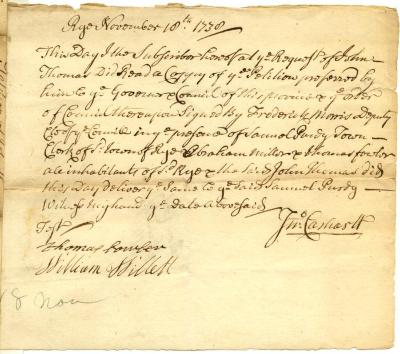 Rye November 18th 1738
This Day I the Subscriber hereof at ye Request of John
Thomas Did Read a Coppy of ye Petition preferred by
him to ye Governor & Council of this province & ye order
of Council thereupon Signed By Frederick Morris Deputy
Clk of ye Council in ye presence of Samuel Purdy Town
Clerk of sd. town of Rye Abraham Miller & thomas fowler
all inhabitants of sd. Rye & the said John Thomas did
this Day deliver ye Same to ye Said Samuel Purdy
Witness my hand ye Date Abovesaid
Test
Jno. Carhartt
Thomas Fowler
William Willett
8 Nov